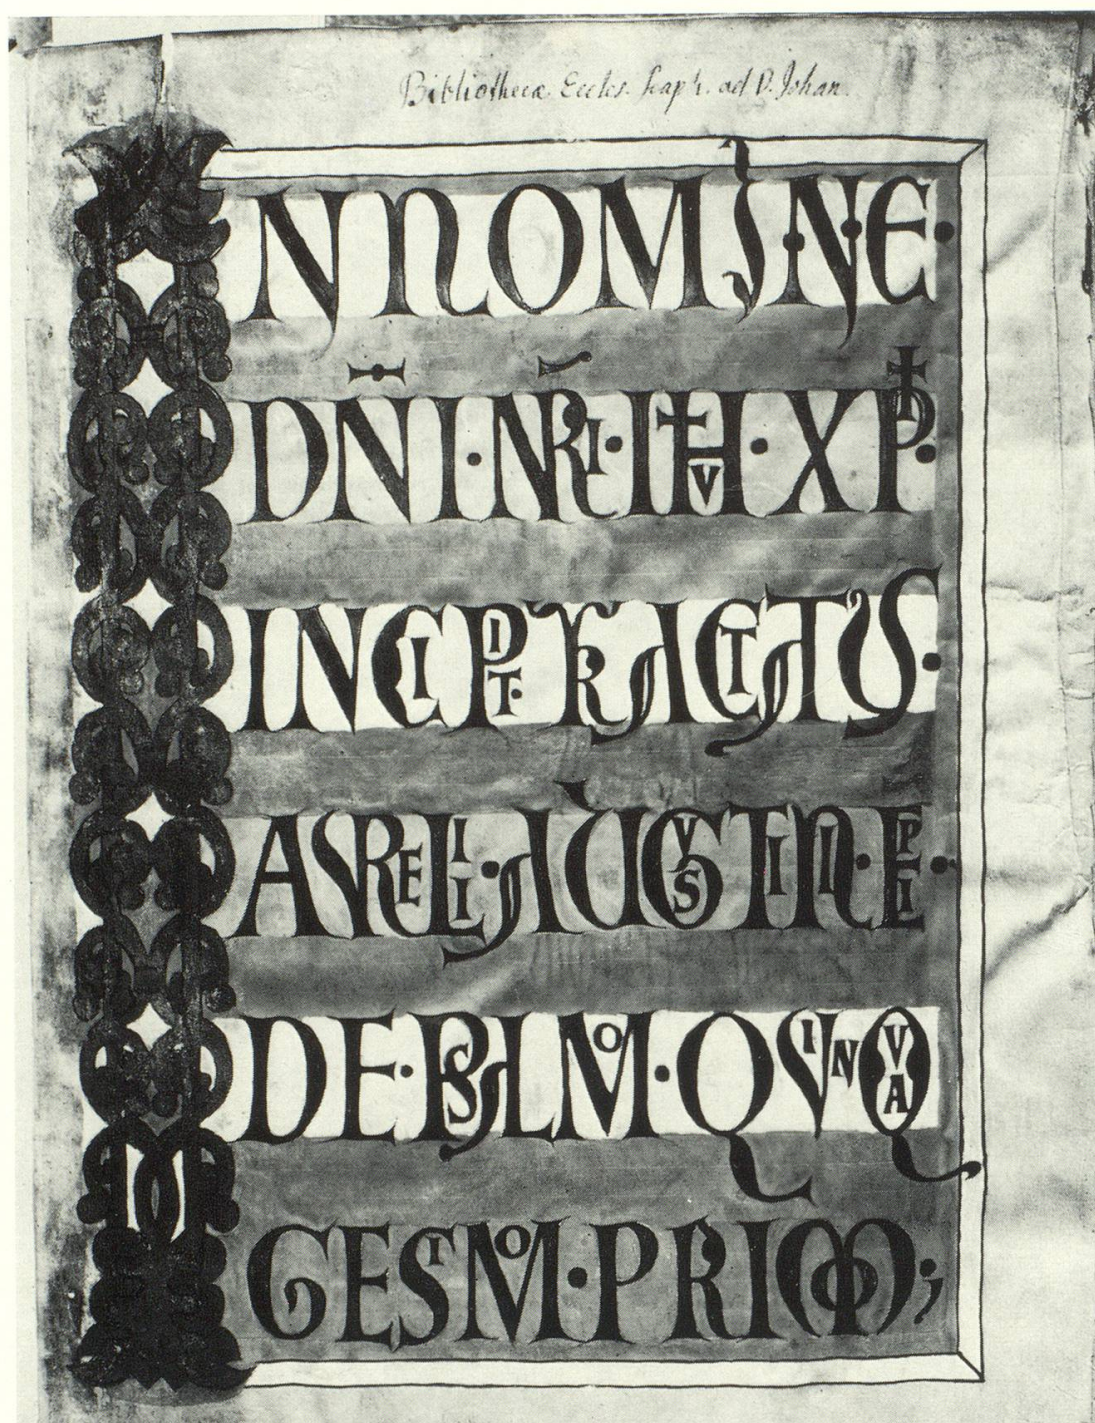 Bibliothecæ Eccles. Scaph. ad D. Johan.
IN NOMINE·
DN̄I·NR̄I·IHV·XPI·
INCIPIT·TRACTATUS·
AVRELII·AUGVSTINI·EPI·
DE·PSALMO·QVINQVA
GESIMO·PRIMO;